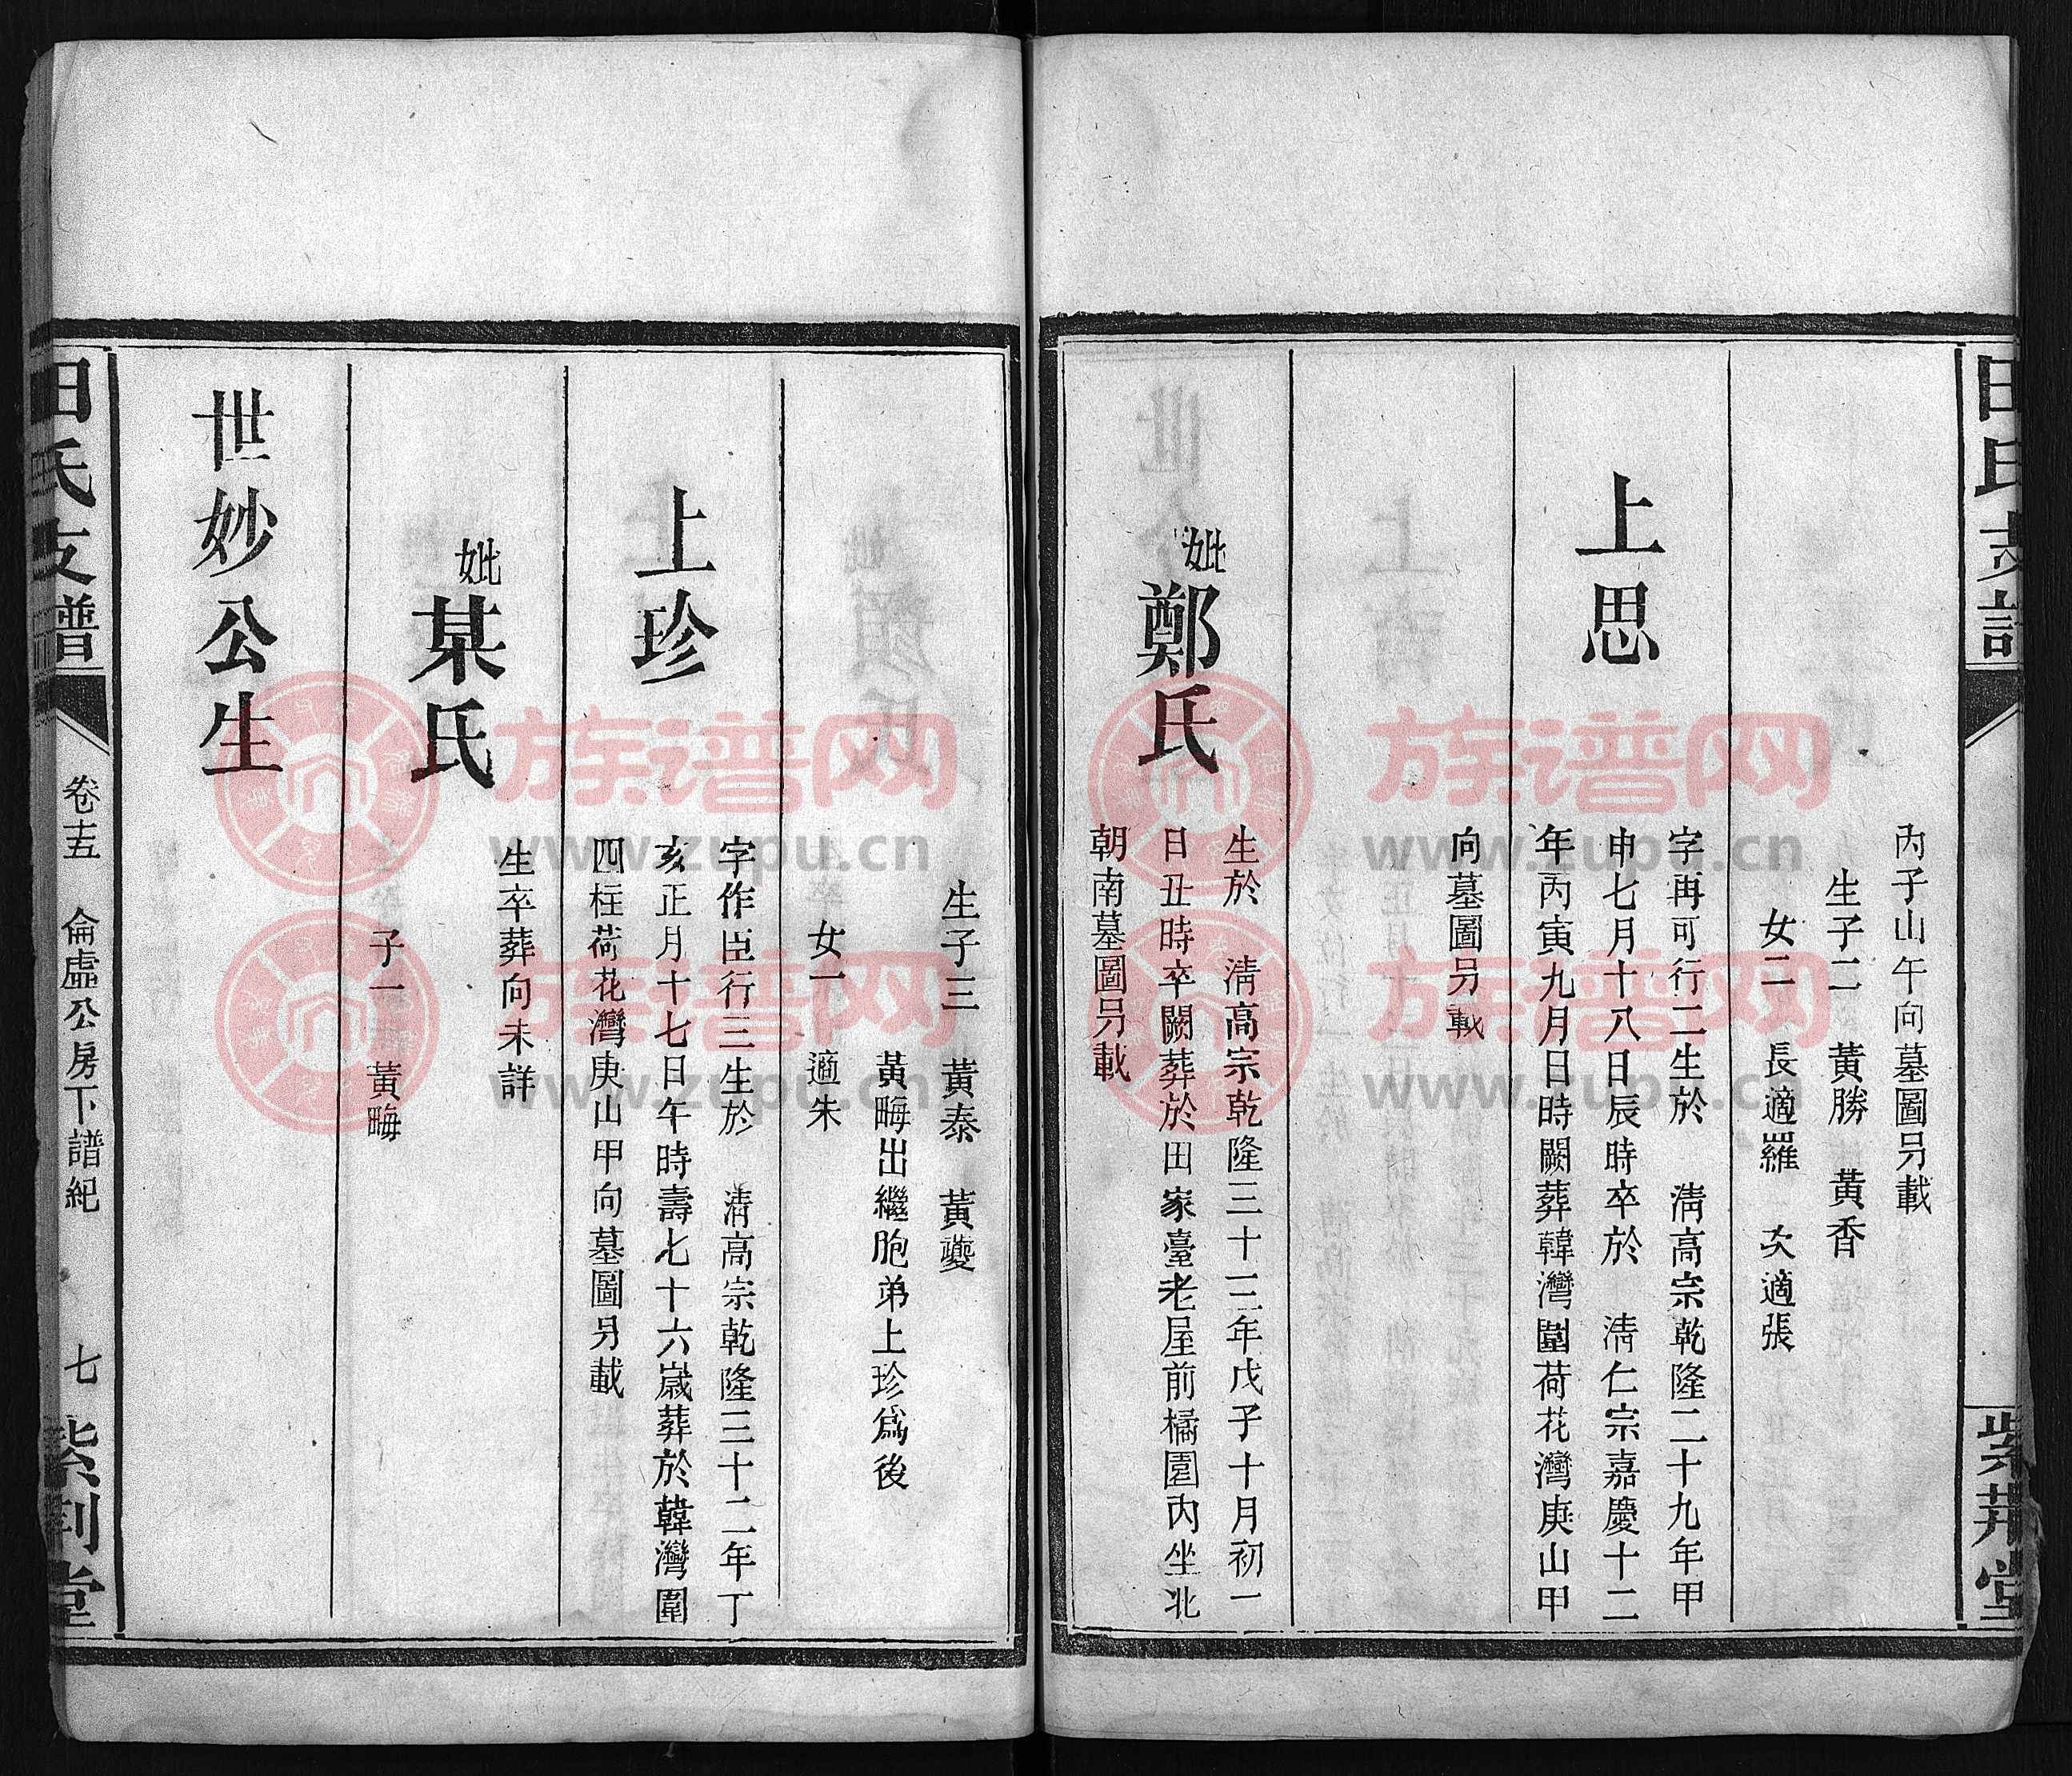 田氏支譜
紫荊堂
丙子山午向墓圖另載
生子二　黃勝　黃香
女二　長適羅　次適張
上思
字再可行二生於　清高宗乾隆二十九年甲
申七月十八日辰時卒於　清仁宗嘉慶十二
年丙寅九月日時闕葬韓灣圍荷花灣庚山甲
向墓圖另載
妣鄭氏
生於　清高宗乾隆三十三年戊子十月初一
日丑時卒闕葬於田家臺老屋前橘園內坐北
朝南墓圖另載
生子三　黃泰　黃夔
黃畮出繼胞弟上珍爲後
女一　適朱
上珍
字作臣行三生於　清高宗乾隆三十二年丁
亥正月十七日午時壽七十六歲葬於韓灣圍
四柱荷花灣庚山甲向墓圖另載
妣某氏
生卒葬向未詳
子一　黃畮
世妙公生
田氏支譜
卷十五　侖虛公房下譜紀　七
紫荊堂
族谱网
www.zupu.cn
族谱网
www.zupu.cn
族谱网
www.zupu.cn
族谱网
www.zupu.cn